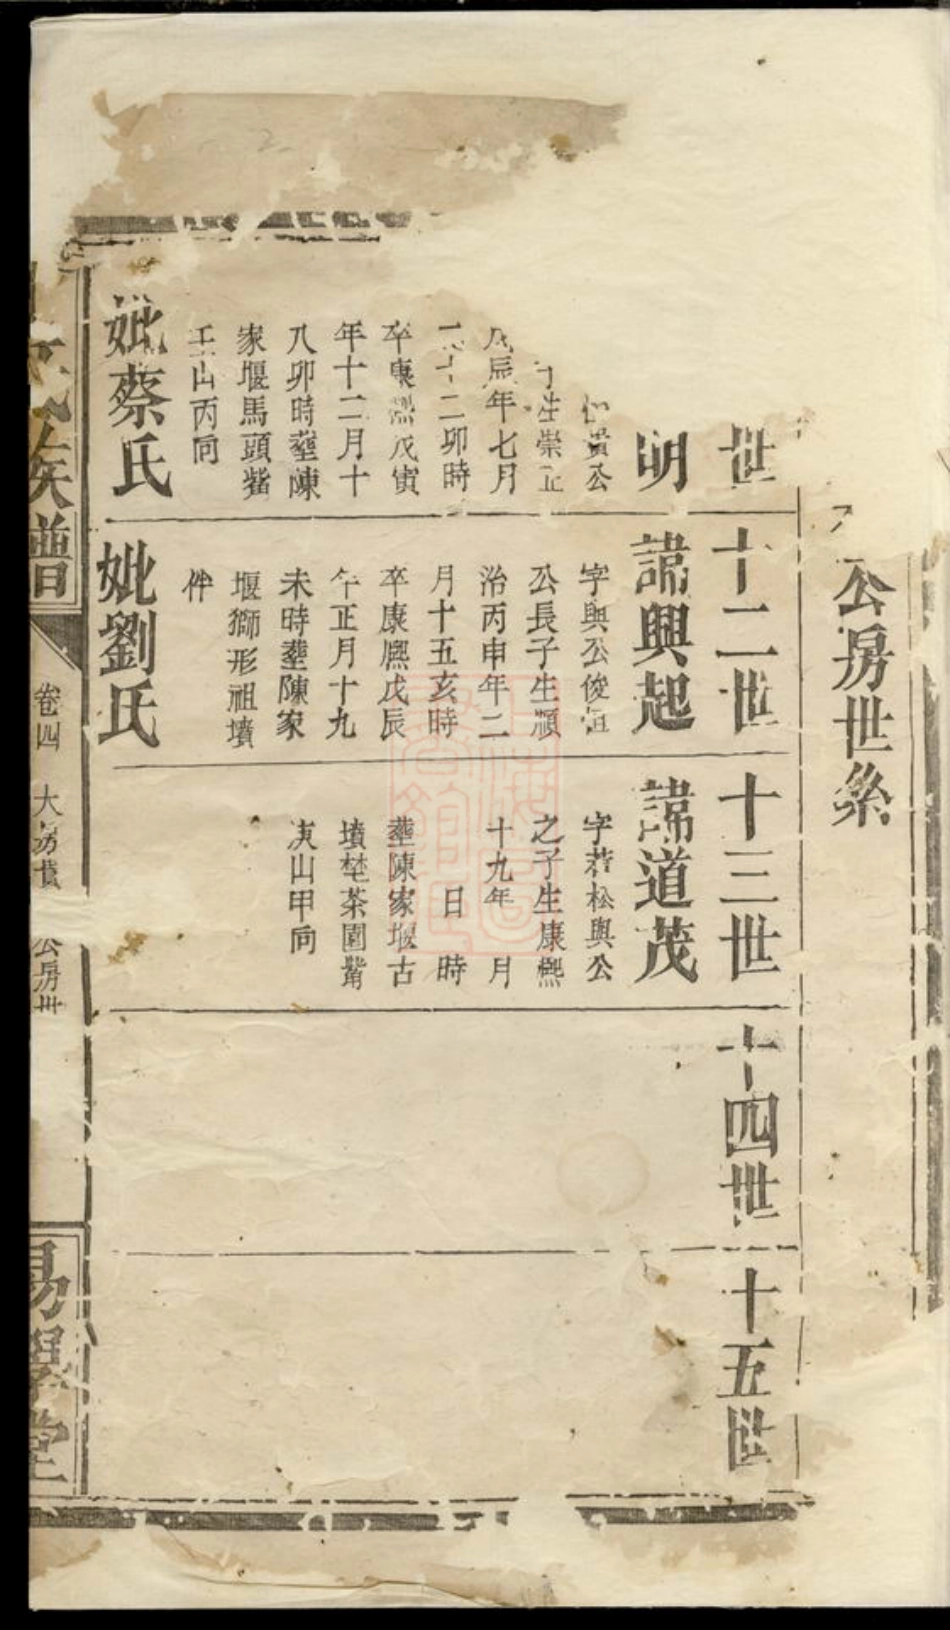 公房世系
世
明
貴公
子生崇正
戊辰年七月
十二卯時
卒康熙戊寅
年十二月十
八卯時塟陳
家堰馬頭觜
壬山丙向
妣蔡氏
十二世
諱興起
字與公俊恒
公長子生順
治丙申年二
月十五亥時
卒康熈戊辰
年正月十九
未時塟陳家
堰獅形祖墳
伴
妣劉氏
十三世
諱道茂
字若松與公
之子生康熈
十九年 月
日 時
塟陳家堰古
墳埜茶園觜
庚山甲向
十四世
十五世
氏族譜
卷四 大房 公房世
易學堂